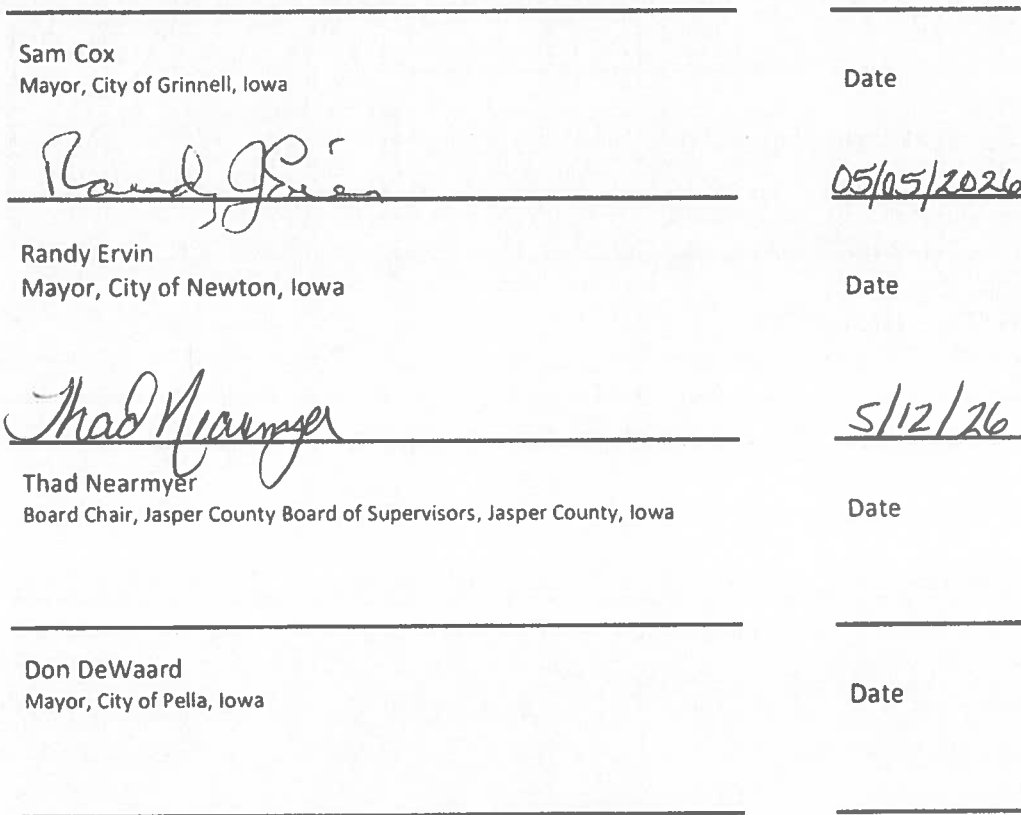 Sam Cox
Mayor, City of Grinnell, Iowa
Date
05/05/2026
Randy Ervin
Mayor, City of Newton, Iowa
Date
Thad Nearmyer
5/12/26
Thad Nearmyer
Board Chair, Jasper County Board of Supervisors, Jasper County, Iowa
Date
Don DeWaard
Mayor, City of Pella, Iowa
Date